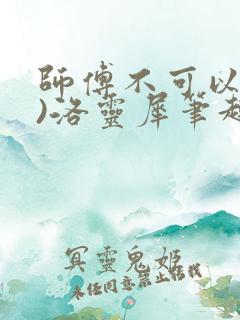 師傅不可以
)洛靈犀筆趣
冥靈鬼姬
未经同意禁止转载